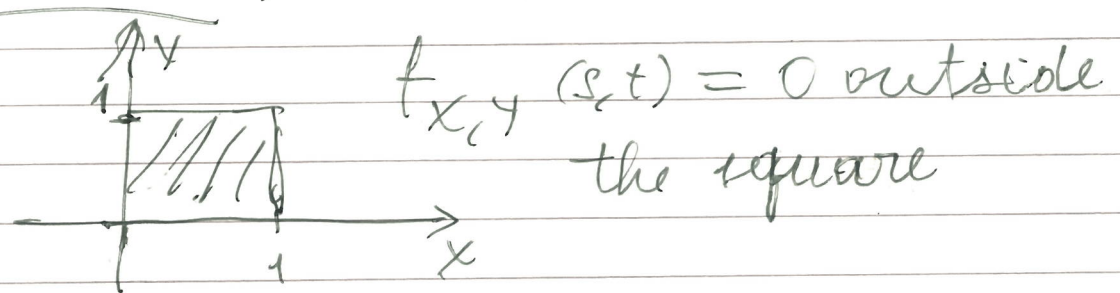 y
1
f_{X,Y} (s,t) = 0 outside
the square
x
1